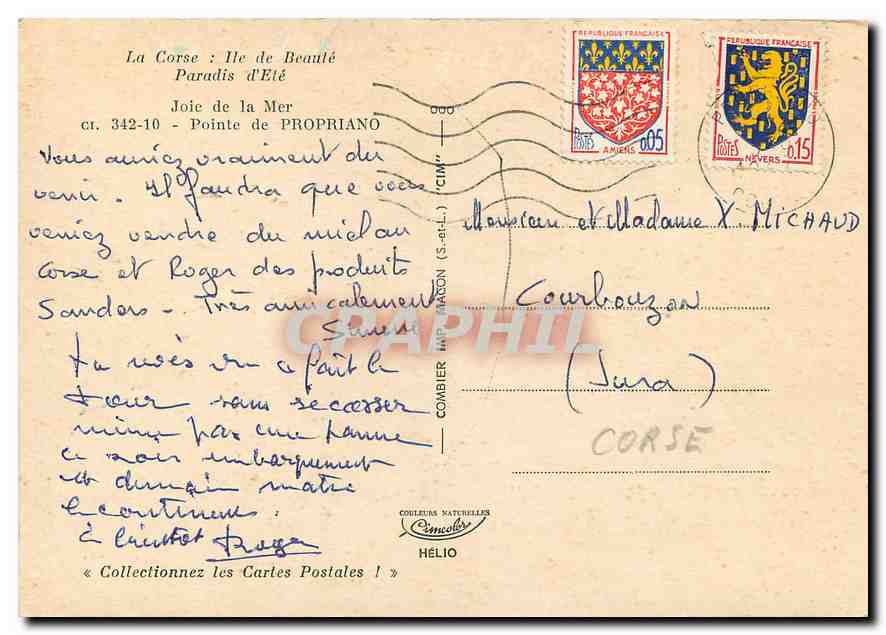 La Corse : Ile de Beauté
Paradis d'Eté
Joie de la Mer
CI. 342-10 - Pointe de PROPRIANO
Vous auriez vraiment du
venir. Il faudra que vous
veniez vendre du miel au
Corse et Roger des produits
Sanders - Très amicalement
Simone
a fait le
tour sans se casser
même pas une panne
ce soir embarquement
et demain matin
le continent
à bientôt Roger
« Collectionnez les Cartes Postales ! »
COMBIER IMP. MACON (S.-et-L.) "CIM"
COULEURS NATURELLES
Cimcolor
HÉLIO
REPUBLIQUE FRANÇAISE
POSTES
0,05
AMIENS
REPUBLIQUE FRANÇAISE
POSTES
0,15
NEVERS
Monsieur et Madame X. MICHAUD
Courbouzon
(Jura)
CORSE
CPAPHIL